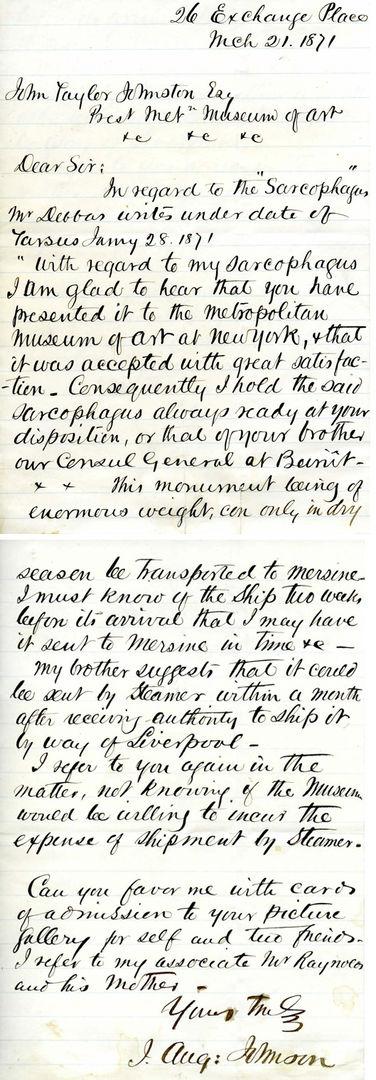 26 Exchange Place
Mch 21. 1871
John Taylor Johnston Esq
Prest Metn Museum of art
&c &c &c
Dear Sir:
In regard to the "Sarcophagus"
Mr Debbas writes under date of
Tarsus Jany 28. 1871
"With regard to my Sarcophagus
I am glad to hear that you have
presented it to the Metropolitan
Museum of art at New York, & that
it was accepted with great satisfac-
-tion - Consequently I hold the said
Sarcophagus always ready at your
disposition, or that of your brother
our Consul General at Beirût -
x x This monument being of
enormous weight, can only in dry
season be transported to Mersine.
I must know of the Ship two weeks
before its arrival that I may have
it sent to Mersine in time &c -
My brother suggests that it could
be sent by Steamer within a month
after receiving authority to ship it
by way of Liverpool -
I refer to you again in the
matter, not knowing if the Museum
would be willing to incur the
expense of shipment by Steamer.
Can you favor me with cards
of admission to your picture
gallery for self and two friends.
I refer to my associate Mr
and his Mother
Yours truly
J. Aug: Johnson